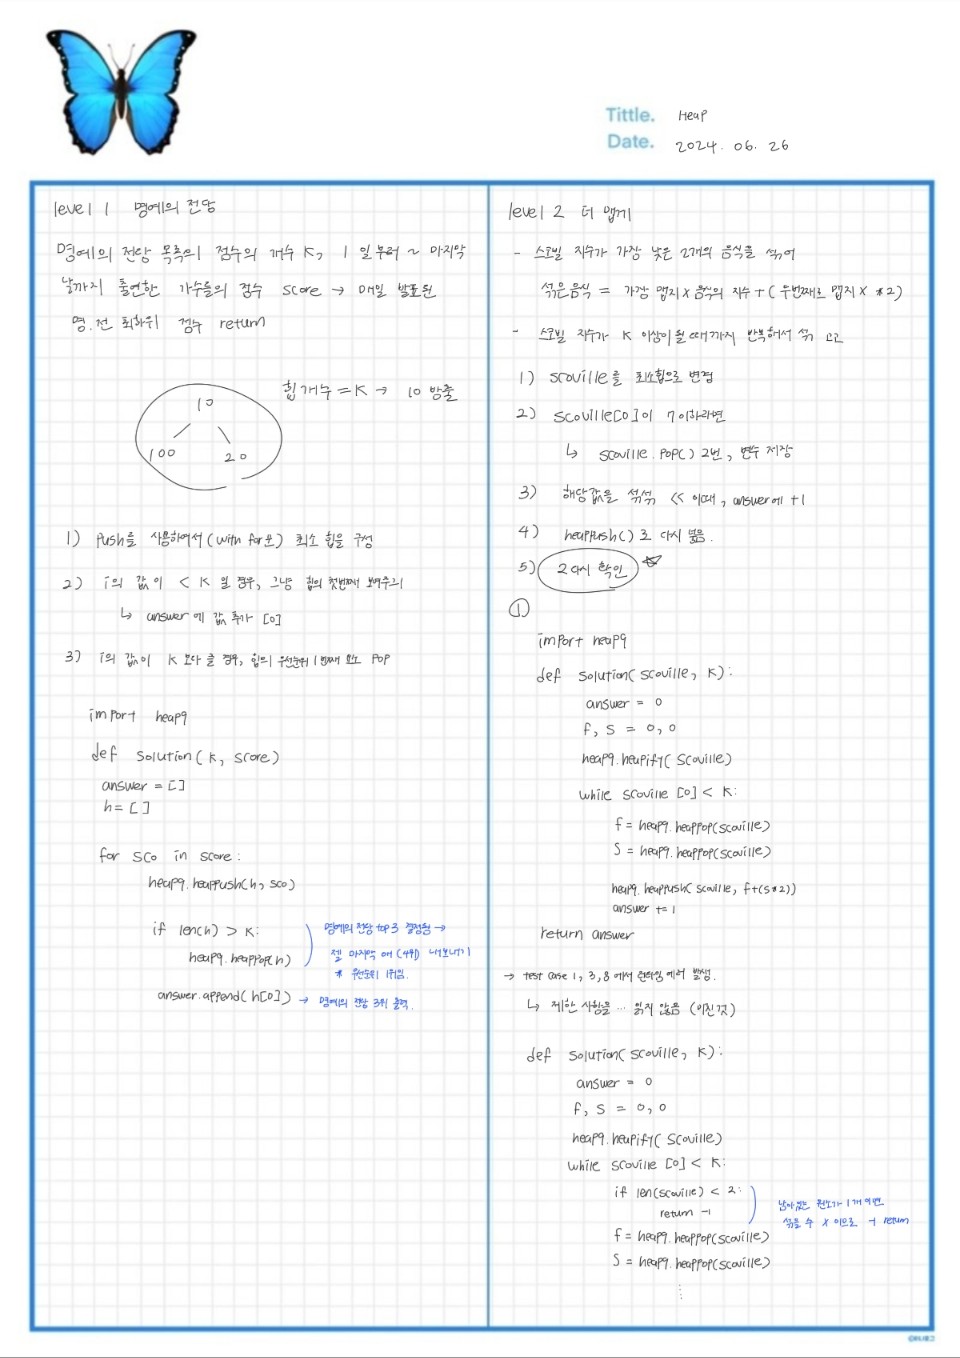 Tittle. Heap
Date. 2024. 06. 26
level 1 명예의 전당
명예의 전당 목록의 점수의 개수 K, 1일부터 ~ 마지막
날까지 출연한 가수들의 점수 score → 매일 발표된
명.전 최하위 점수 return
힙 개수 = K → 10 방출
10
100 20
1) Push를 사용하여서 (with for문) 최소 힙을 구성
2) i의 값이 < K 일 경우, 그냥 힙의 첫번째 보여주기
↳ answer에 값 추가 [0]
3) i의 값이 K 보다 클 경우, 힙의 우선순위 1번째 요소 POP
import heapq
def solution(K, score)
answer = []
h = []
for sco in score:
heapq.heappush(h, sco)
if len(h) > K:
heapq.heappop(h)
명예의 전당 top 3 결정됨 →
젤 마지막 애 (4위) 내보내기
* 우선순위 1위임.
answer.append(h[0]) → 명예의 전당 3위 출력.
level 2 더 맵게
- 스코빌 지수가 가장 낮은 2개의 음식을 섞어
섞은 음식 = 가장 맵지 X 음식의 지수 + ( 두번째로 맵지 X * 2)
- 스코빌 지수가 K 이상이 될 때까지 반복해서 섞
1) scoville를 최소힙으로 변경
2) scoville[0]이 7이하라면
↳ scoville.pop() 2번, 변수 저장
3) 해당값을 섞섞 << 이때, answer에 +1
4) heappush()로 다시 넣음.
5) 2 다시 확인
①
import heapq
def solution(scoville, K):
answer = 0
f, s = 0, 0
heapq.heapify(scoville)
while scoville [0] < K:
f = heapq.heappop(scoville)
s = heapq.heappop(scoville)
heapq.heappush(scoville, f+(s*2))
answer += 1
return answer
→ test case 1, 3, 8 에서 런타임 에러 발생.
↳ 제한 사항을 ... 읽지 않음 (이진 것)
def solution(scoville, K):
answer = 0
f, s = 0, 0
heapq.heapify(scoville)
while scoville [0] < K:
if len(scoville) < 2:
return -1
남아있는 원소가 1개 이면
섞을 수 X 이므로 -1 return
f = heapq.heappop(scoville)
s = heapq.heappop(scoville)
⋮